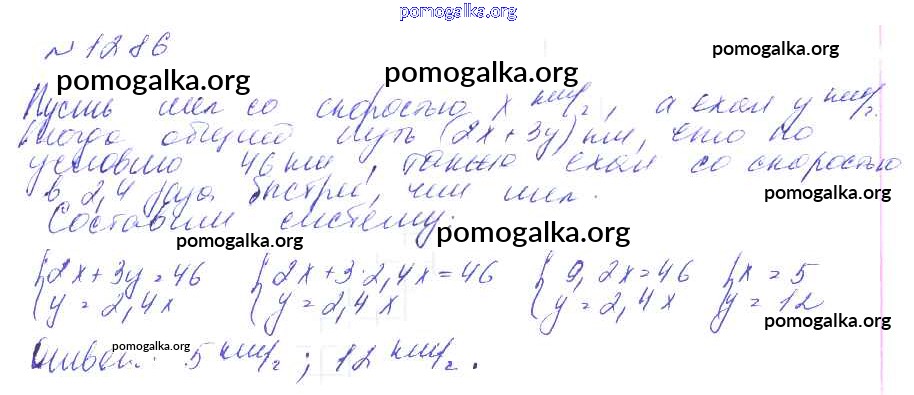 pomogalka.org
№ 1286
pomogalka.org
pomogalka.org pomogalka.org
Пусть шел со скоростью x км/ч, а ехал y км/ч.
Тогда общий путь (2x+3y) км, что по
условию 46 км, только ехал со скоростью
в 2,4 раза быстрей, чем шел.
pomogalka.org
Составим систему:
pomogalka.org pomogalka.org
{2x+3y=46 {2x+3·2,4x=46 {9,2x=46 {x=5
{y=2,4x {y=2,4x {y=2,4x {y=12
pomogalka.org
pomogalka.org
Ответ: 5 км/ч; 12 км/ч.